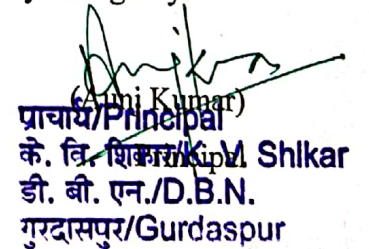 (Ajni Kumar)
प्राचार्य/Principal
Principal
के. वि. शिकार/K. V. Shikar
डी. बी. एन./D.B.N.
गुरदासपुर/Gurdaspur